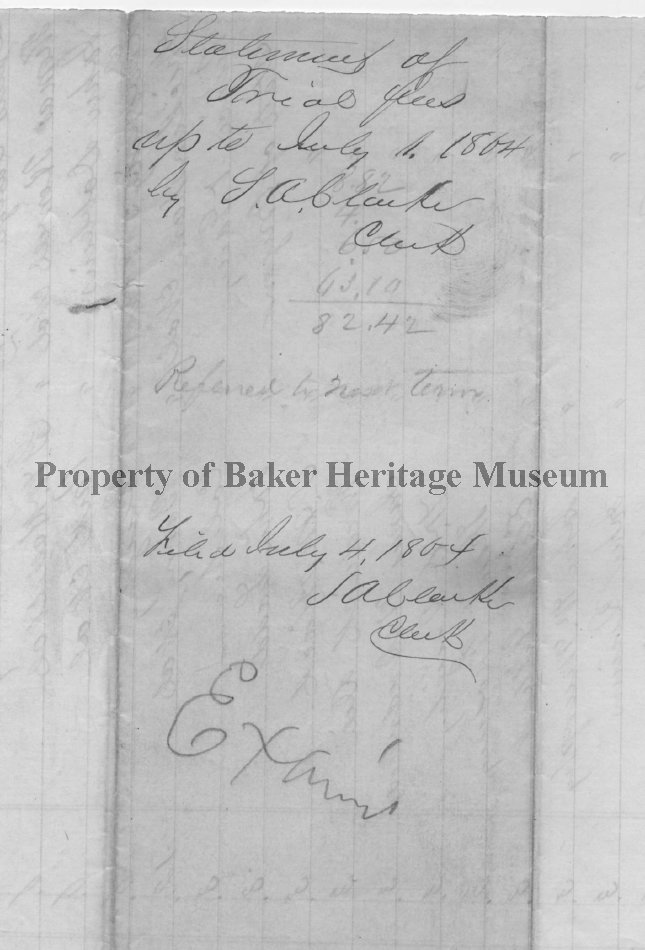 Statement of
Trial fees
up to July 1. 1864
by S.A. Clarke
Clerk
.82
4.
63.10
82.42
Referred to next term
Property of Baker Heritage Museum
Filed July 4, 1864
S A Clarke
Clerk